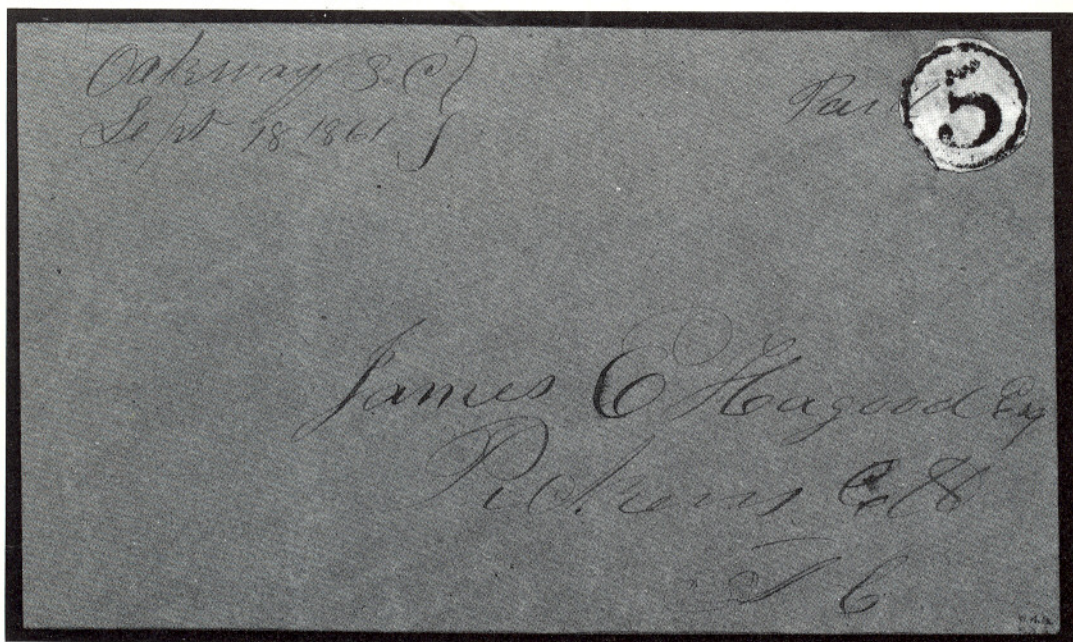 Oakway S. C
Sept 18 1861
Paid
5
James E Hagood Esq
Pickens C. H
S C